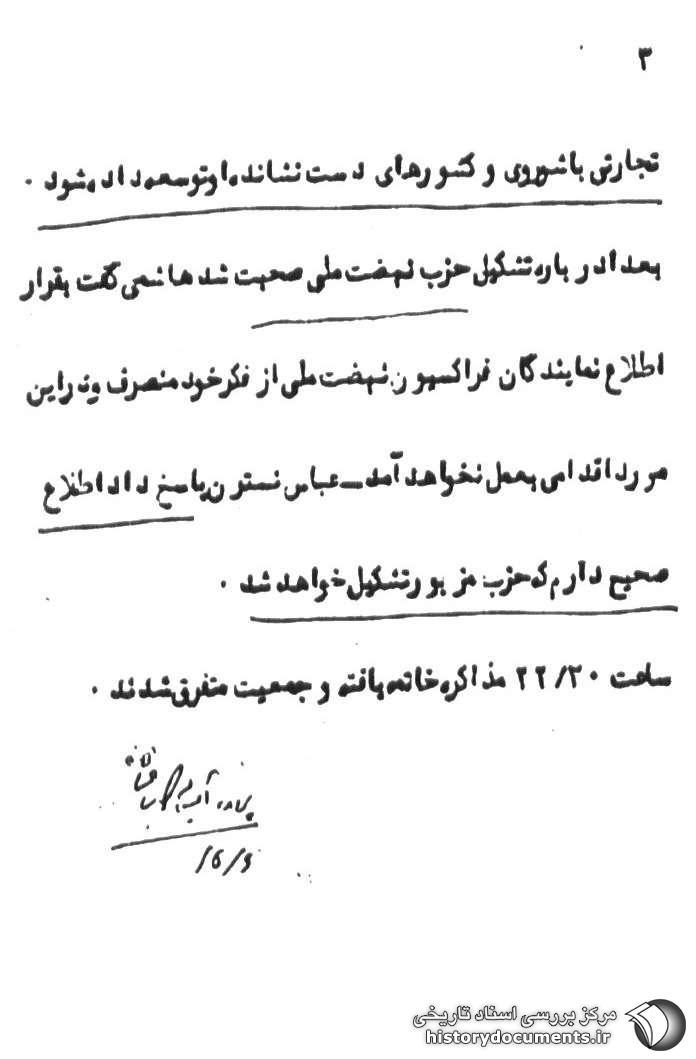 ۳
تجارتی با شوروی و کشورهای دست نشانده او توسعه داده شود .
بعدا در باره تشکیل حزب نهضت ملی صحبت شد هاشمی گفت بقرار
اطلاع نمایندگان فراکسیون نهضت ملی از فکر خود منصرف و در این
مورد اقدامی بعمل نخواهد آمد ـ عباس نسترن پاسخ داد اطلاع
صحیح دارم که حزب مزبور تشکیل خواهد شد .
ساعت ۲۲/۲۰ مذاکره خاتمه یافته و جمعیت متفرق شدند .
مرکز بررسی اسناد تاریخی
historydocuments.ir